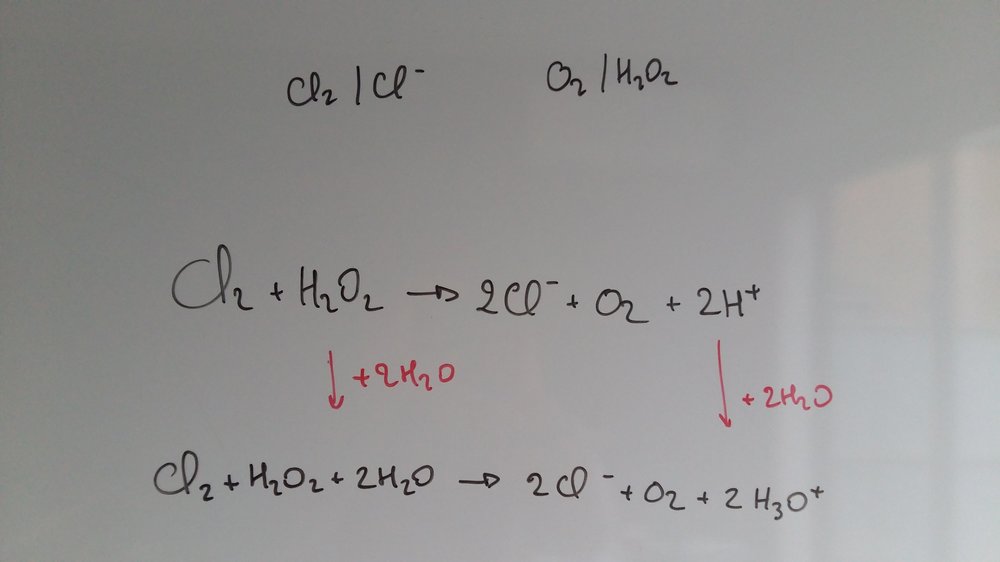 Cl₂ / Cl⁻ O₂ / H₂O₂
Cl₂ + H₂O₂ → 2Cl⁻ + O₂ + 2H⁺
↓ +2H₂O ↓ +2H₂O
Cl₂ + H₂O₂ + 2H₂O → 2Cl⁻ + O₂ + 2H₃O⁺